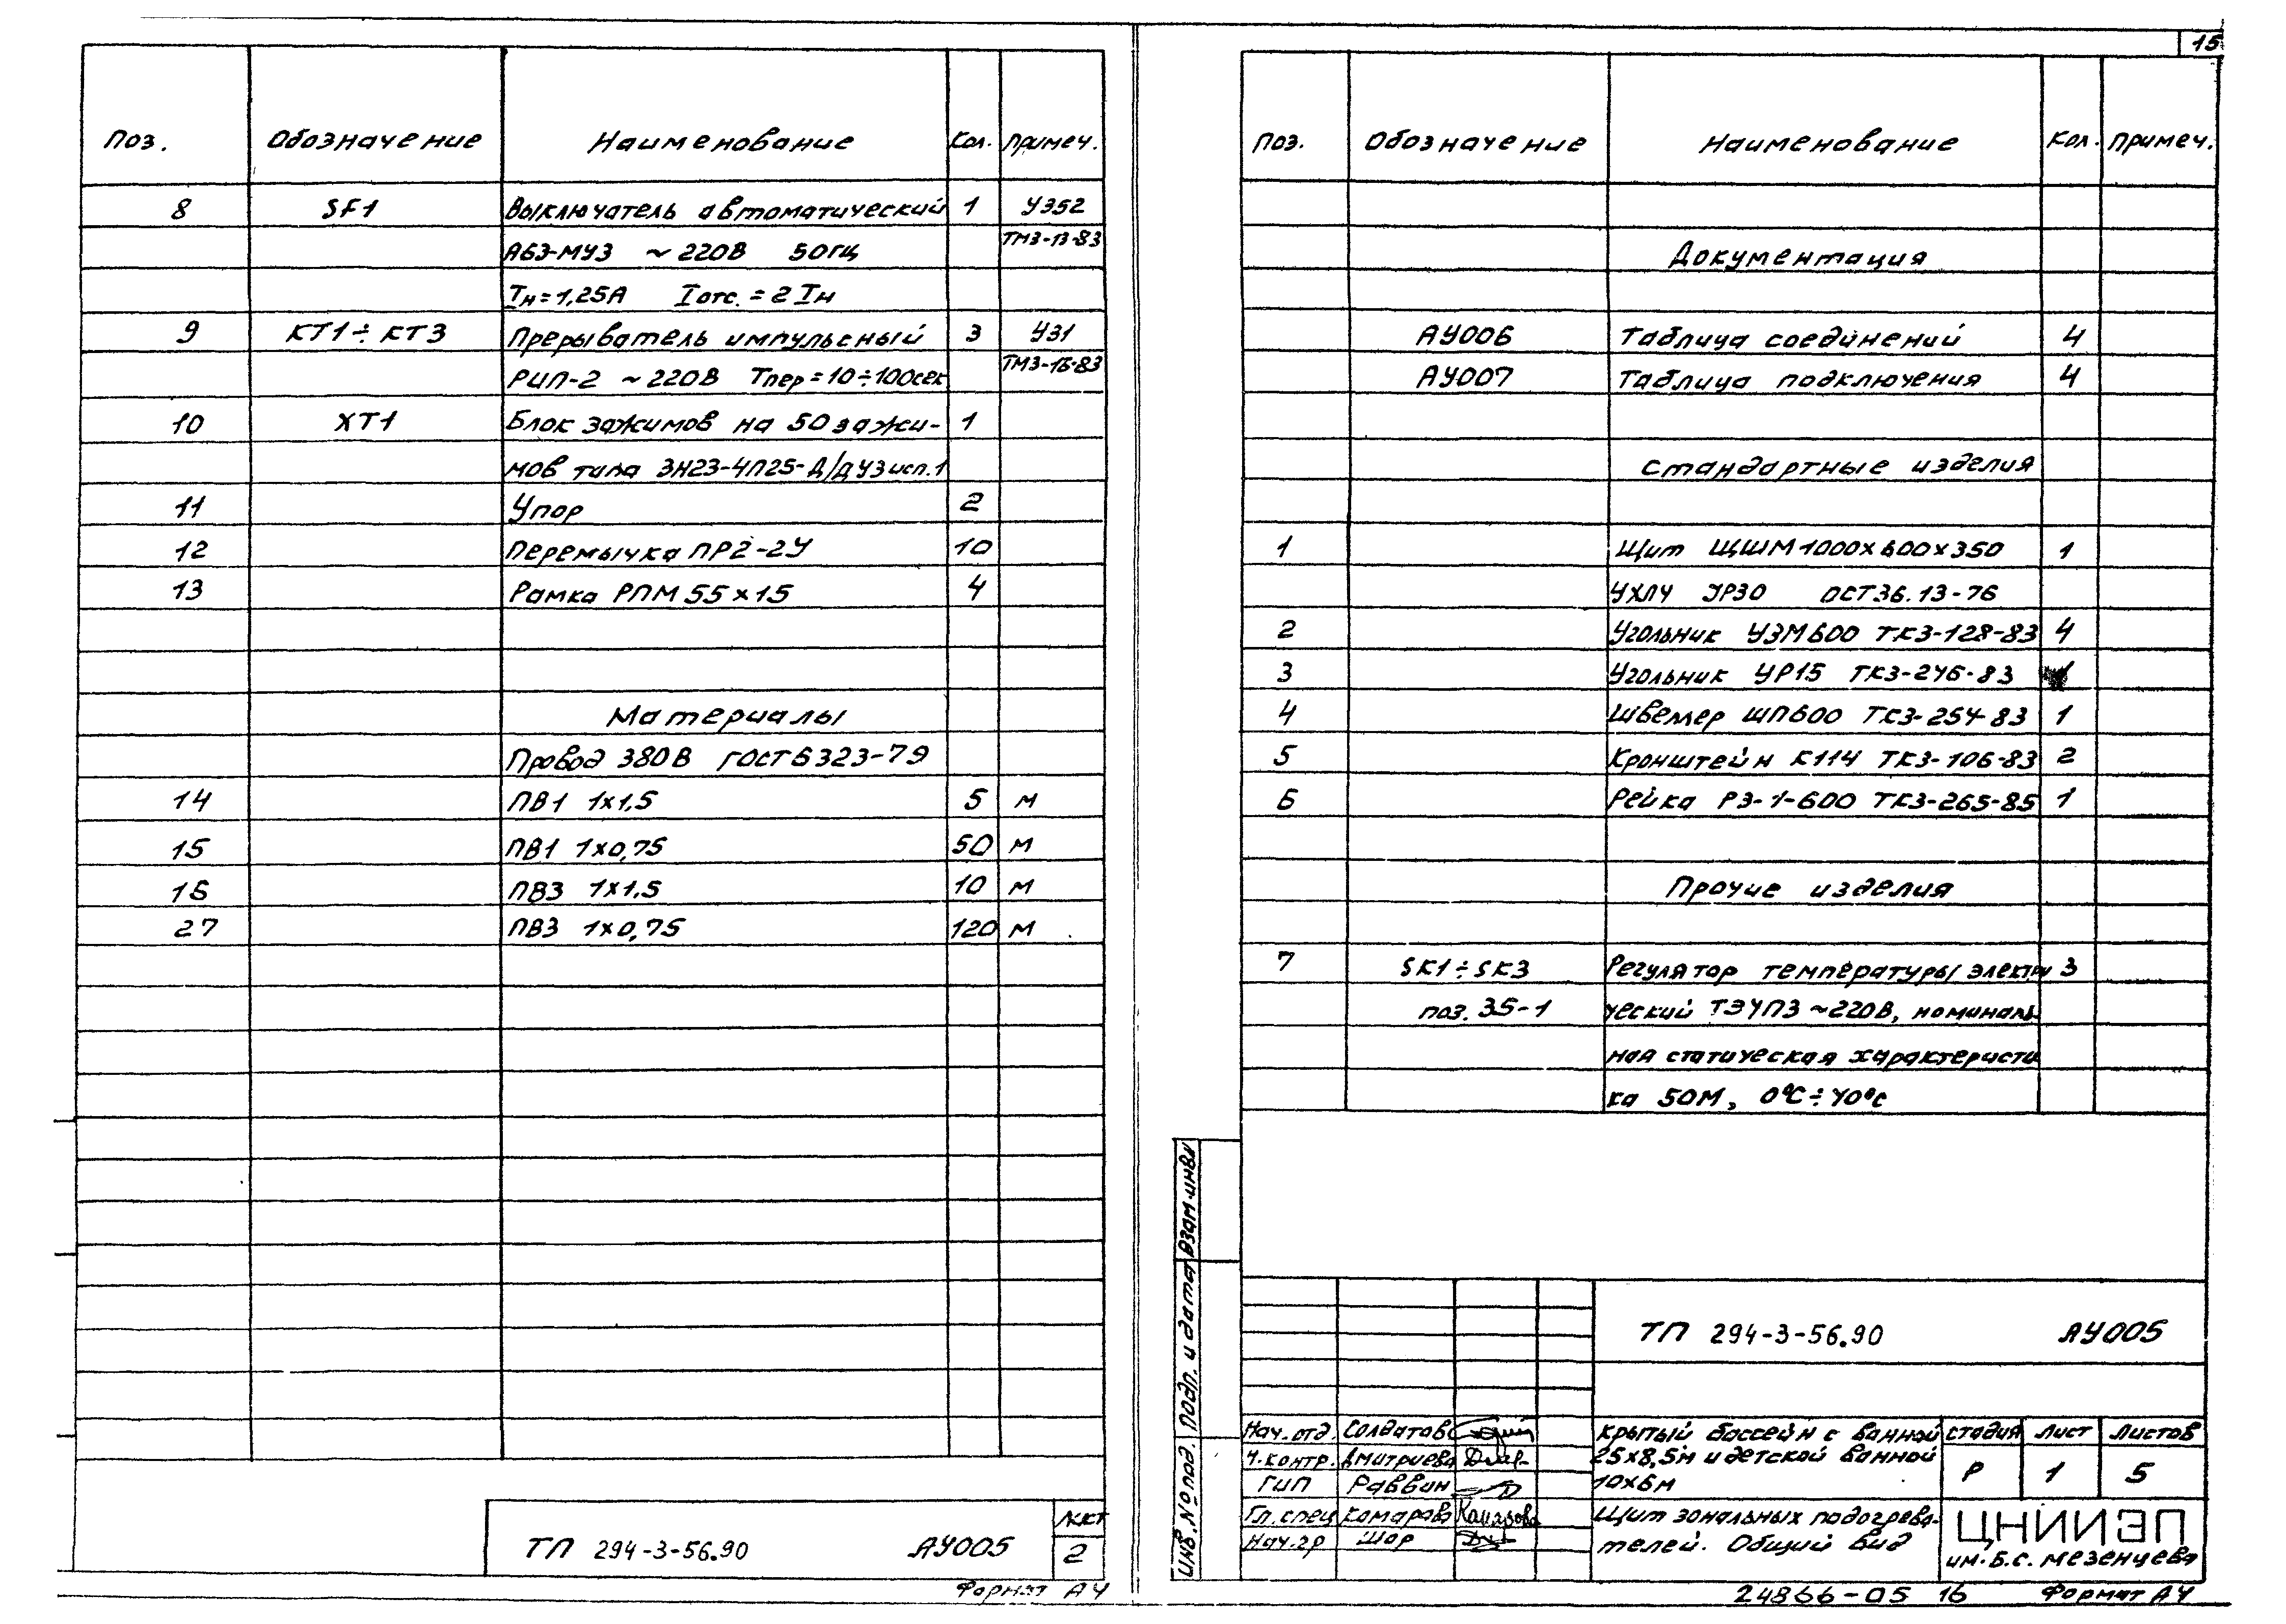 Поз. Обозначение Наименование Кол. Примеч.
8 SF1 Выключатель автоматический 1 У352
А63-МУ3 ~ 220В 50Гц ТМ3-13-83
Iн=1,25А Iотс.=2Iн
9 КТ1÷КТ3 Прерыватель импульсный 3 У31
РИП-2 ~220В Тпер=10÷100сек ТМ3-16-83
10 ХТ1 Блок зажимов на 50 зажи- 1
мов типа ЗН23-4П25-Д/ДУ3 исп.1
11 Упор 2
12 Перемычка ПР2-2У 10
13 Рамка РПМ 55х15 4
Материалы
Провод 380В ГОСТ 6323-79
14 ПВ1 1х1,5 5 м
15 ПВ1 1х0,75 50 м
16 ПВ3 1х1,5 10 м
27 ПВ3 1х0,75 120 м
ТП 294-3-56.90 АУ005
Лист
2
Формат А4
15
Поз. Обозначение Наименование Кол. Примеч.
Документация
АУ006 Таблица соединений 4
АУ007 Таблица подключения 4
Стандартные изделия
1 Щит ЩШМ 1000х600х350 1
УХЛ4 УР30 ОСТ36.13-76
2 Угольник УЗМ600 ТК3-128-83 4
3 Угольник УР15 ТК3-246-83 1
4 Швеллер ШП600 ТК3-254-83 1
5 Кронштейн К114 ТК3-106-83 2
6 Рейка РЗ-1-600 ТК3-265-85 1
Прочие изделия
7 SK1÷SK3 Регулятор температуры электри 3
поз. 35-1 ческий ТЭ4П3 ~220В, номиналь-
ная статическая характеристи
ка 50М, 0°С÷40°с
Взам.инв№
Подп. и дата
Инв.№ подл.
ТП 294-3-56.90 АУ005
Нач.отд. Солдатов
Н.контр. Дмитриева
ГИП Раввин
Гл.спец Комарова
Нач.гр Шор
Крытый бассейн с ванной
25х8,5м и детской ванной
10х6м
стадия лист листов
Р 1 5
Щит зональных подогрева-
телей. Общий вид
ЦНИИЭП
им. Б.С. Мезенцева
24866-05 16 Формат А4